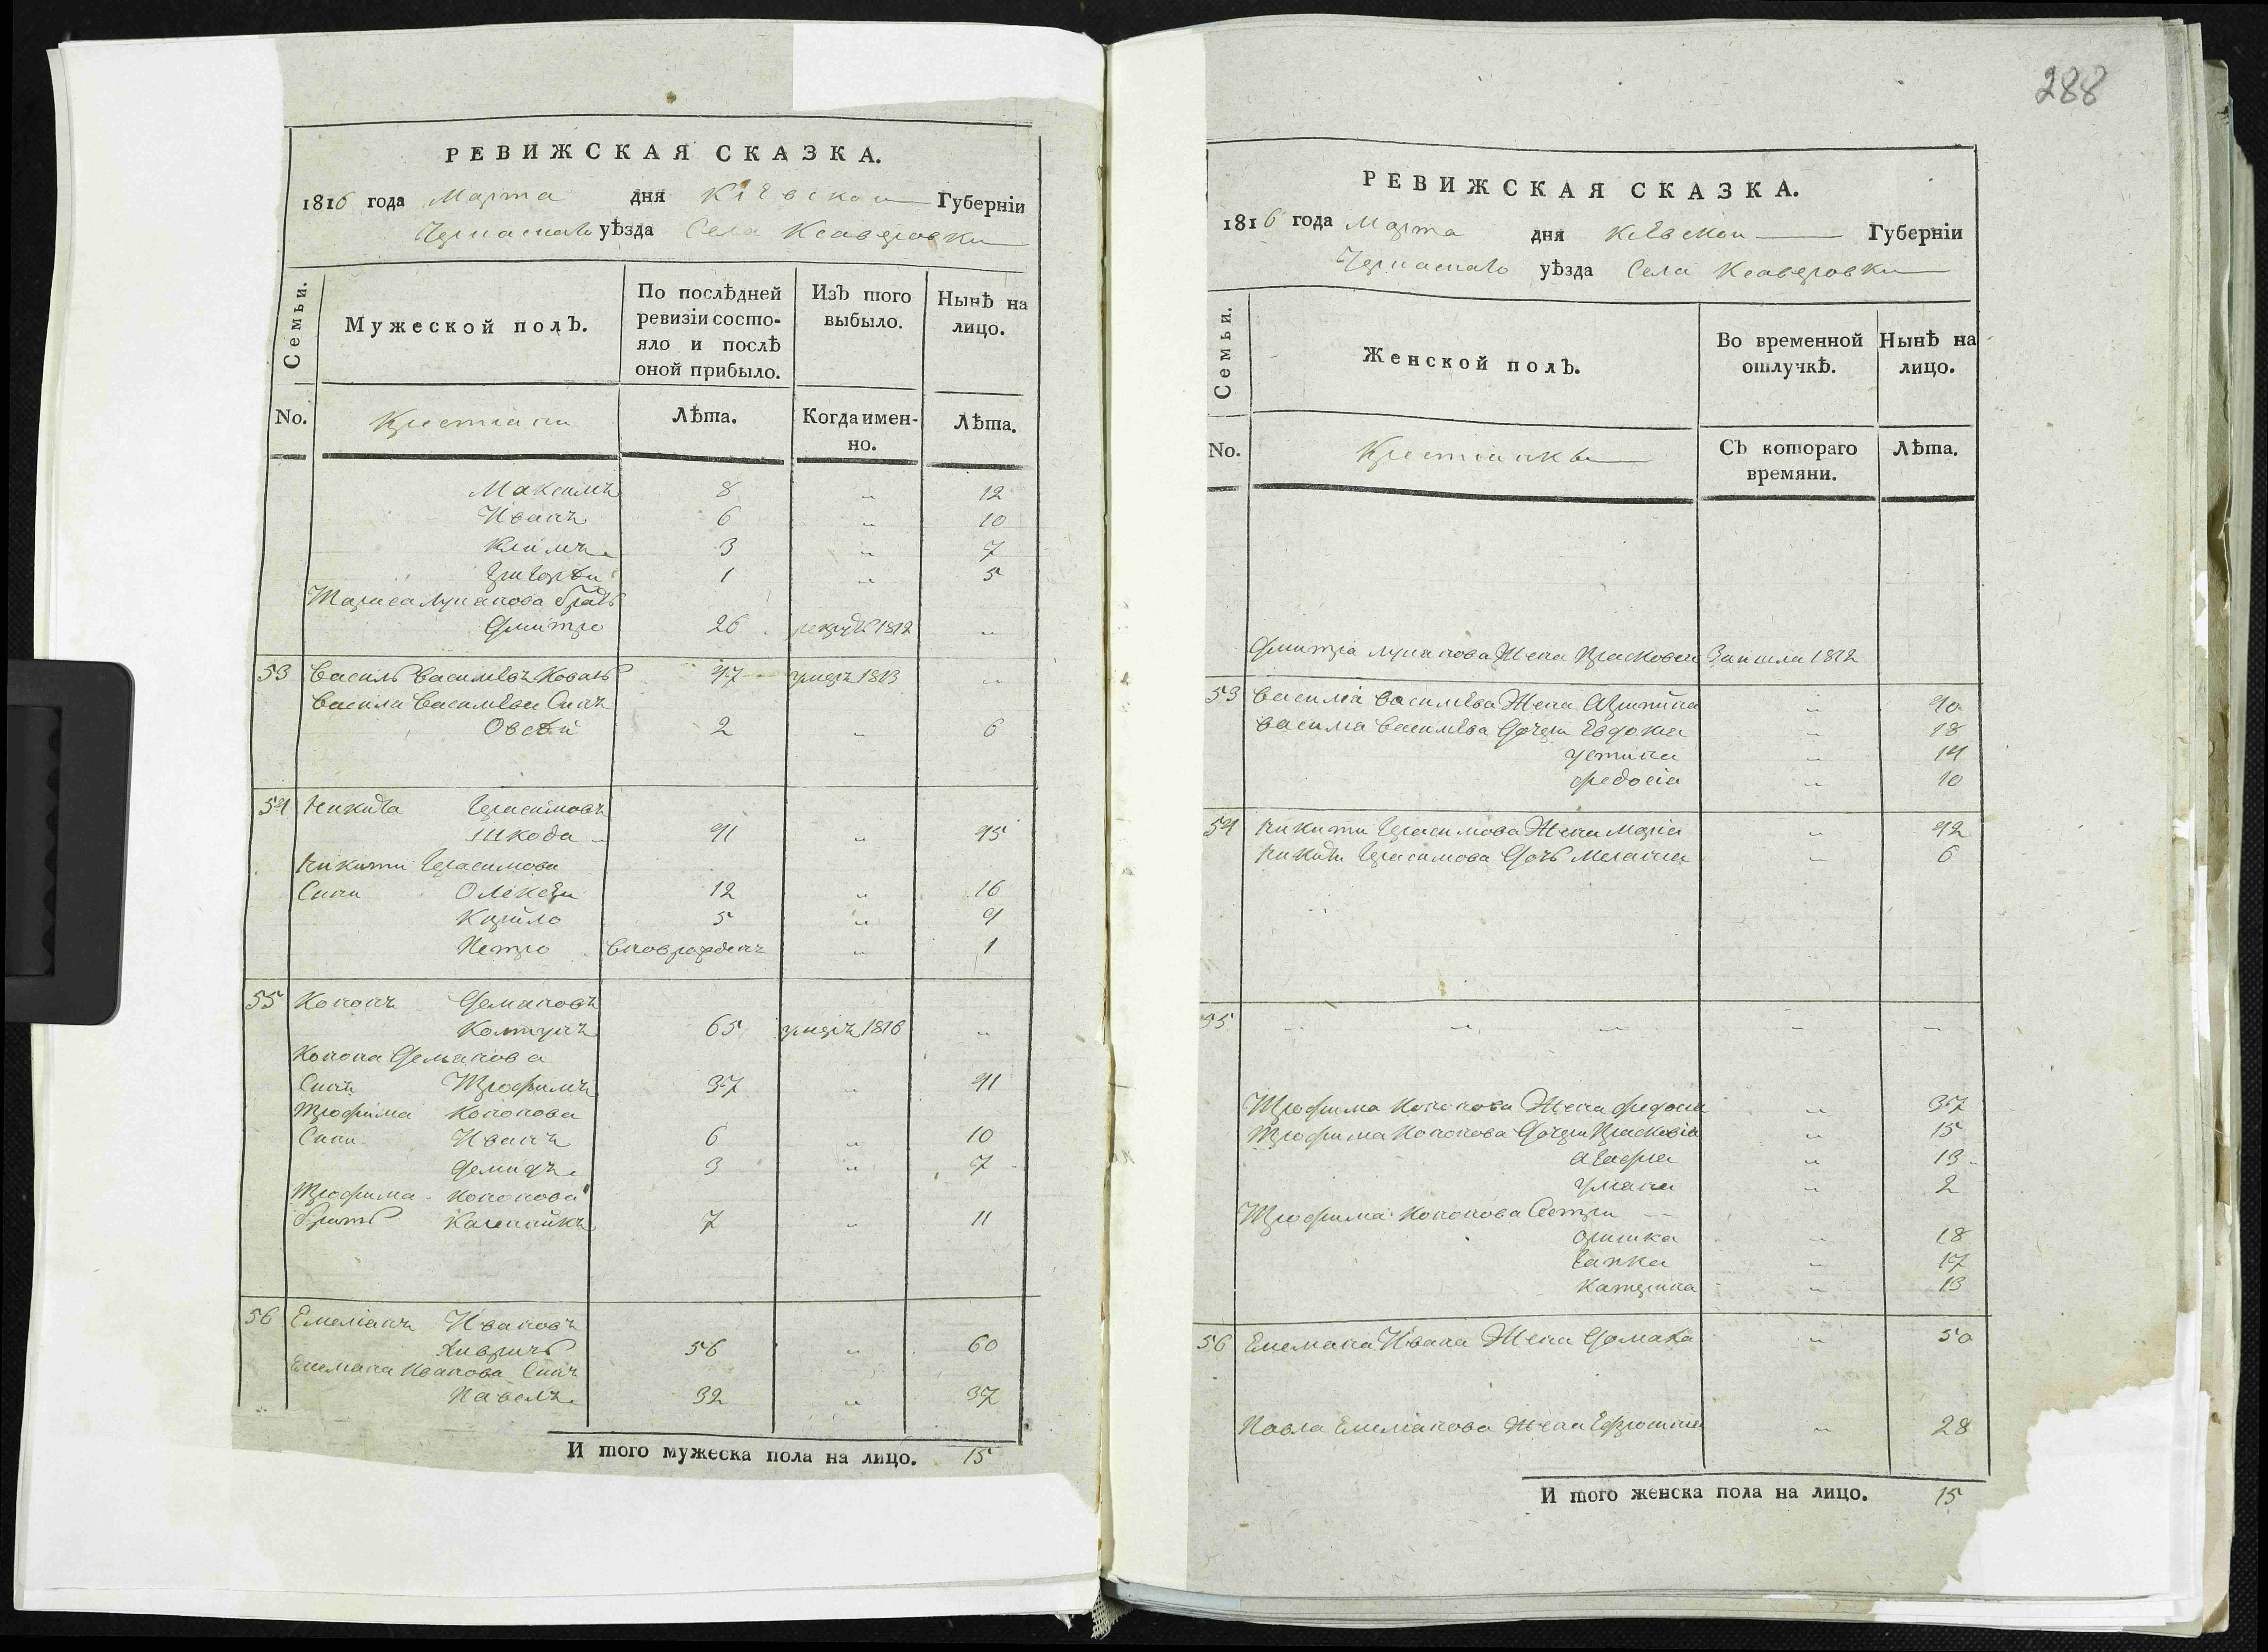 288
РЕВИЖСКАЯ СКАЗКА.
1816 года Марта дня Кіевской Губерніи
Черкаскаго уѣзда Села Ксаверовки
Семьи.
Мужеской полЪ.
По послѣдней ревизіи состояло и послѣ оной прибыло.
ИзЪ того выбыло.
Нынѣ на лицо.
No.
Крестіяни
Лѣта.
Когда именно.
Лѣта.
Максимъ 8 „ 12
Иванъ 6 „ 10
Климъ 3 „ 7
Григорѣй 1 „ 5
Тараса Лукянова братъ
Дмитро 26 рекрутъ 1812 „
53 Василь Васильевъ Коваль 47 умеръ 1813 „
Василя Васильева Синъ
Овсѣй 2 „ 6
54 Никита Герасимовъ
Шкода 41 „ 45
Никити Герасимова
Сини Олексѣй 12 „ 16
Кирило 5 „ 9
Петро вновърожденъ „ 1
55 Кононъ Демяновъ
Колтунъ 65 умеръ 1816 „
Конона Демянова
Синъ Трофимъ 37 „ 41
Трофима Кононова
Сини Иванъ 6 „ 10
Демидъ 3 „ 7
Трофима Кононова
братъ Каленикъ 7 „ 11
56 Емеліанъ Ивановъ
56 „ 60
Емеляна Иванова Синъ
Павелъ 32 „ 37
И того мужеска пола на лицо. 15
РЕВИЖСКАЯ СКАЗКА.
1816 года Марта дня Кіевской Губерніи
Черкаскаго уѣзда Села Ксаверовки
Семьи.
Женской полЪ.
Во временной отлучкѣ.
Нынѣ на лицо.
No.
Крестіянки
СЪ котораго времяни.
Лѣта.
Дмитра Лукянова Жена Прасковея Зайшла 1812
53 Василія Васильева Жена „ 40
Василя Васильева Дочери Евдокия „ 18
Устина „ 14
Федосія „ 10
54 Никити Герасимова Жена Марія „ 42
Никити Герасимова Дочь Меланя „ 6
55 „ „ „ „ „
Трофима Кононова Жена Федосия „ 37
Трофима Кононова Дочери Прасковія „ 15
Агафия „ 13
Уляна „ 2
Трофима Кононова Сестри
Оришка „ 18
Гапка „ 17
Катерина „ 13
56 Емеляна Ивана Жена Домаха „ 50
Павла Емелянова Жена Ефросиния „ 28
И того женска пола на лицо. 15